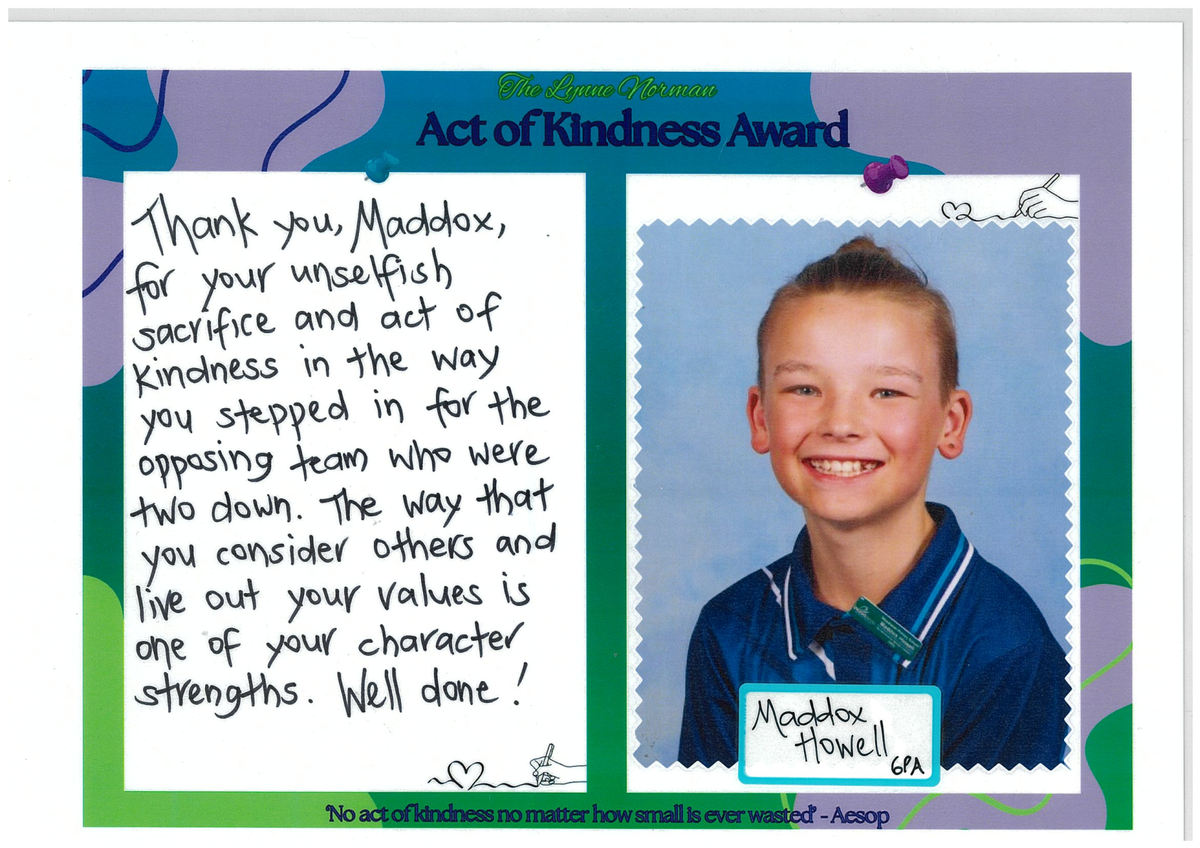 The Lynne Norman
Act of Kindness Award
Thank you, Maddox,
for your unselfish
sacrifice and act of
kindness in the way
you stepped in for the
opposing team who were
two down. The way that
you consider others and
live out your values is
one of your character
strengths. Well done!
Maddox
Howell
6PA
'No act of kindness no matter how small is ever wasted' - Aesop